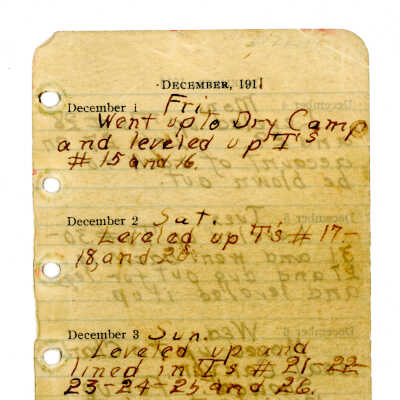 DECEMBER, 1911
December 1 Fri.
Went up to Dry Camp
and leveled up T's
# 15 and 16.
December 2 Sat.
Leveled up T's # 17-
18, and 28.
December 3 Sun.
Leveled up and
lined in T's # 21-22-
23-24-25 and 26.